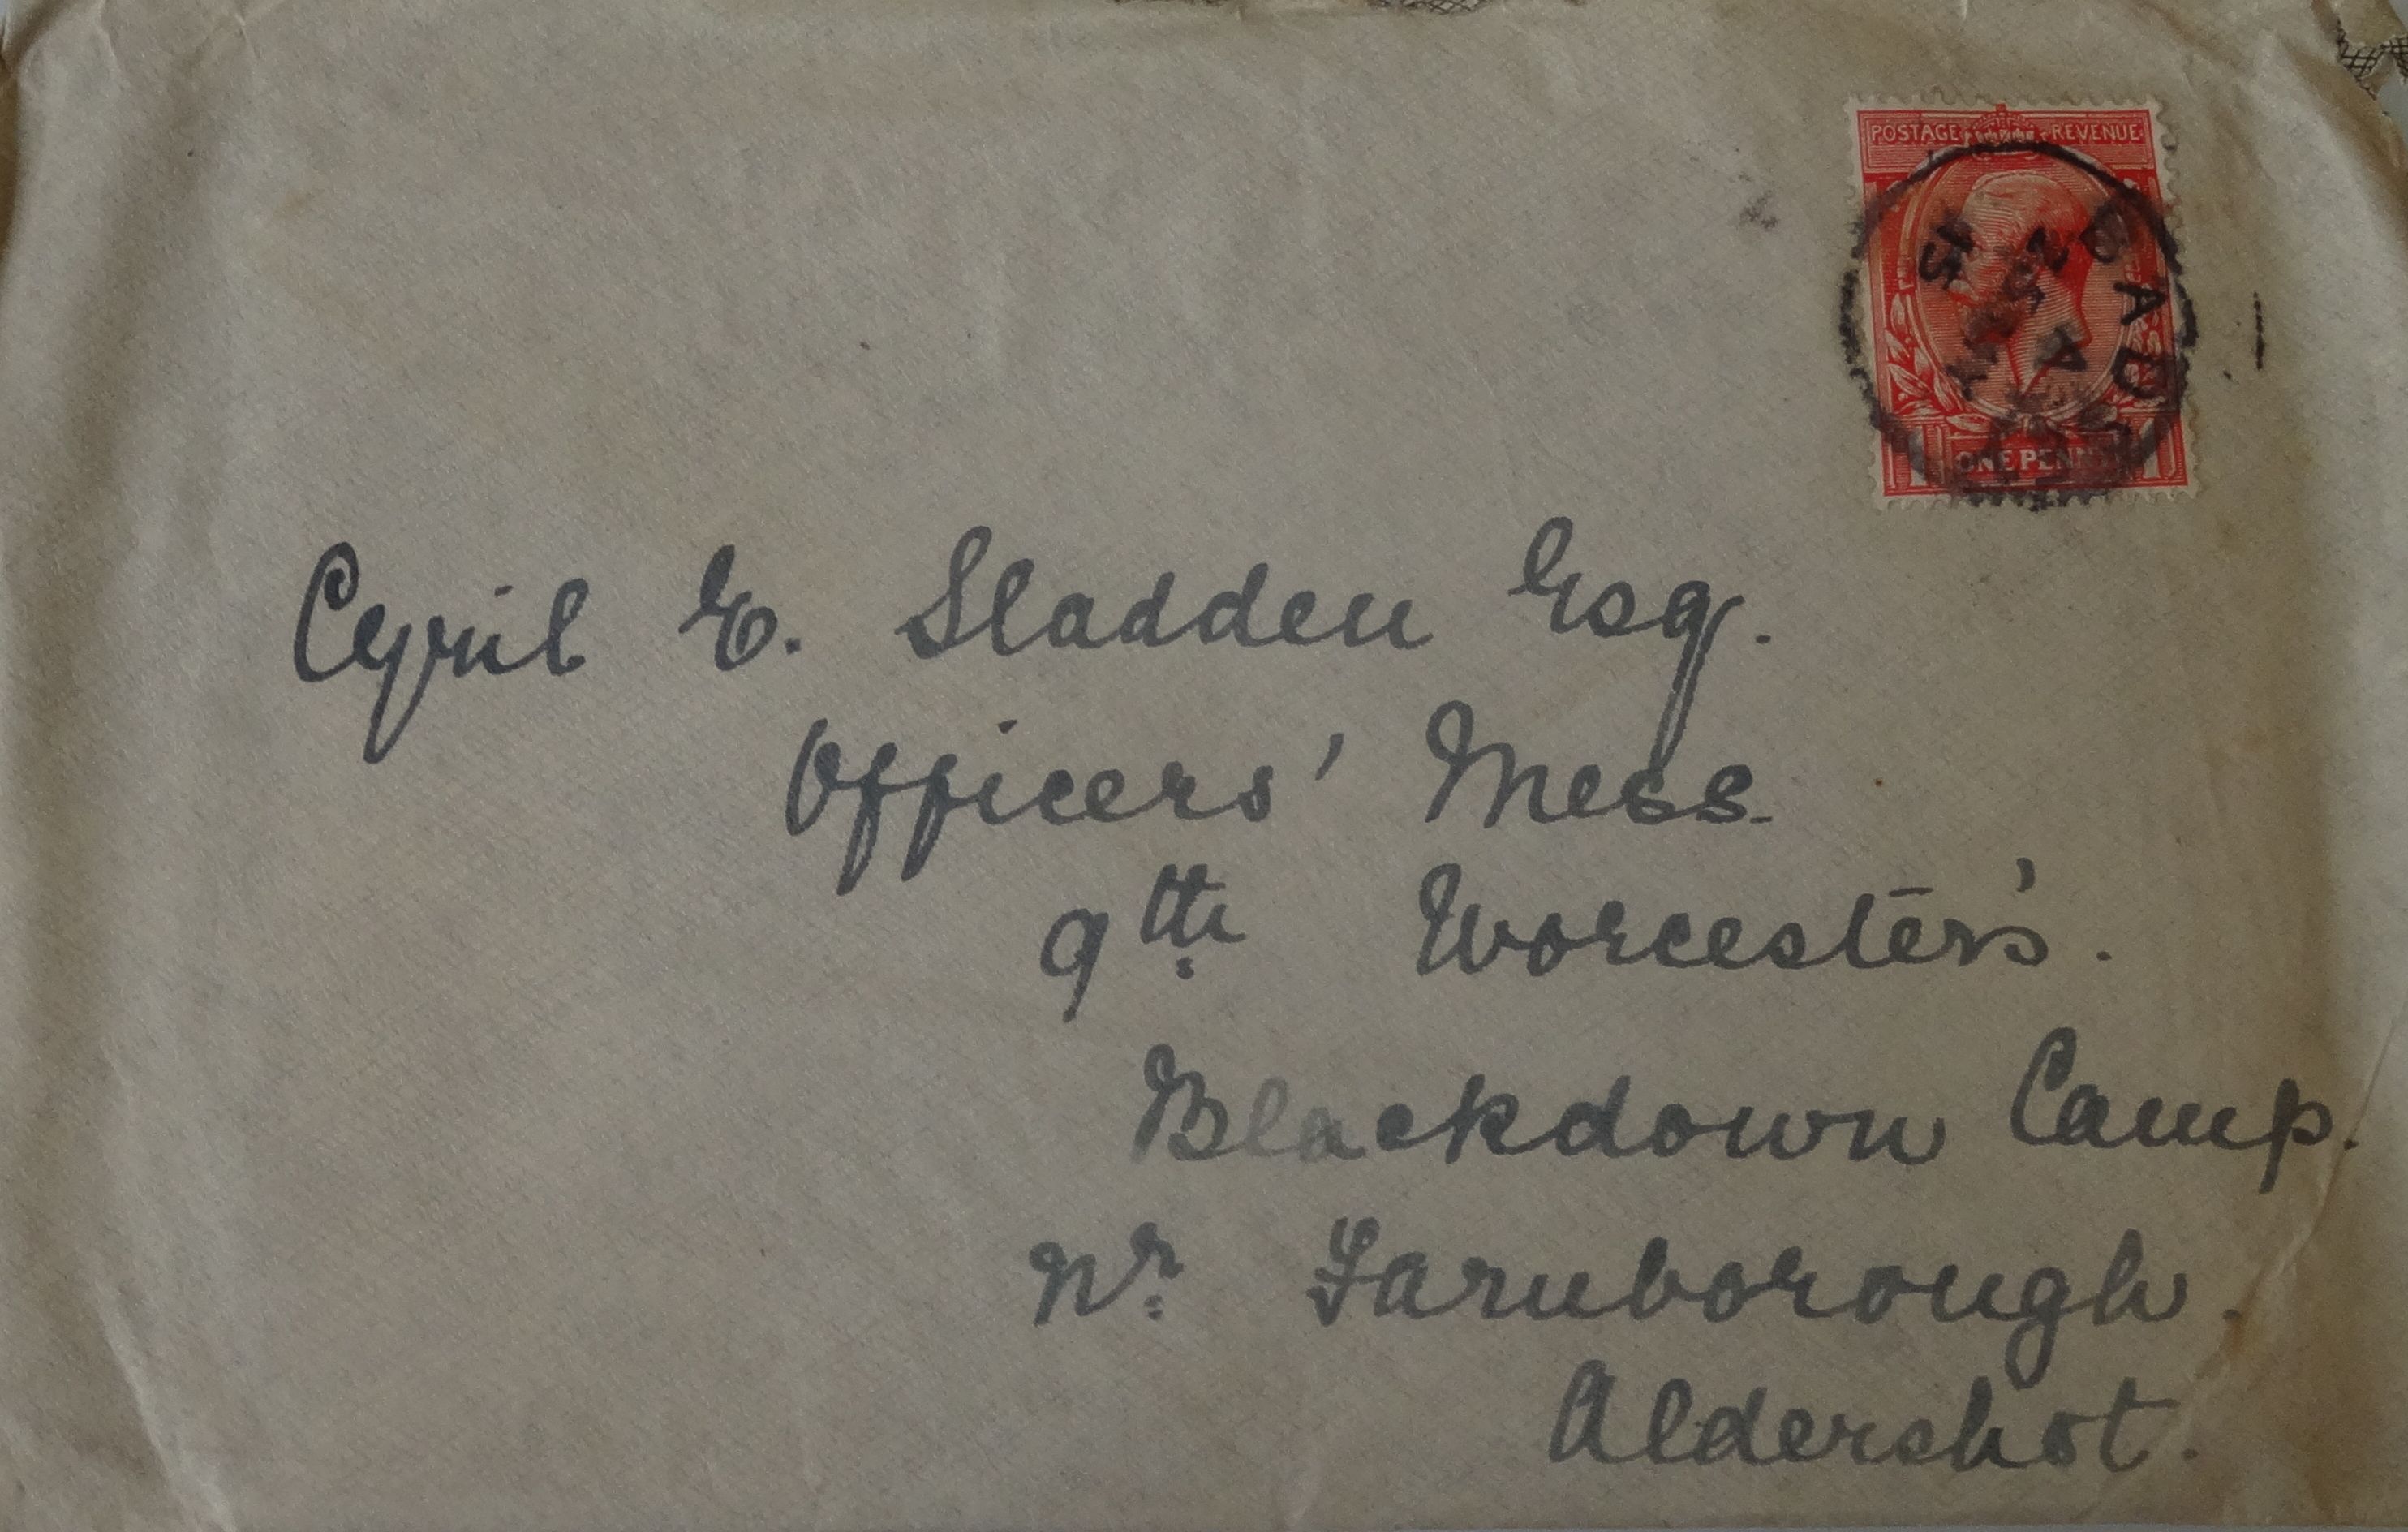 POSTAGE REVENUE
BAD
15
ONE PENNY
Cyril E. Sladden Esq.
Officers' Mess.
9th Worcester's.
Blackdown Camp.
Nr Farnborough.
Aldershot.